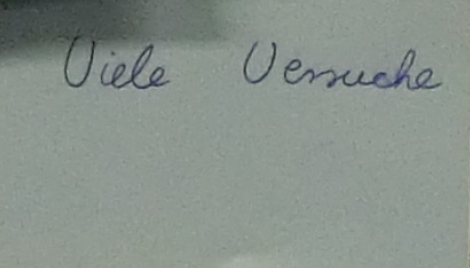 Viele Versuche